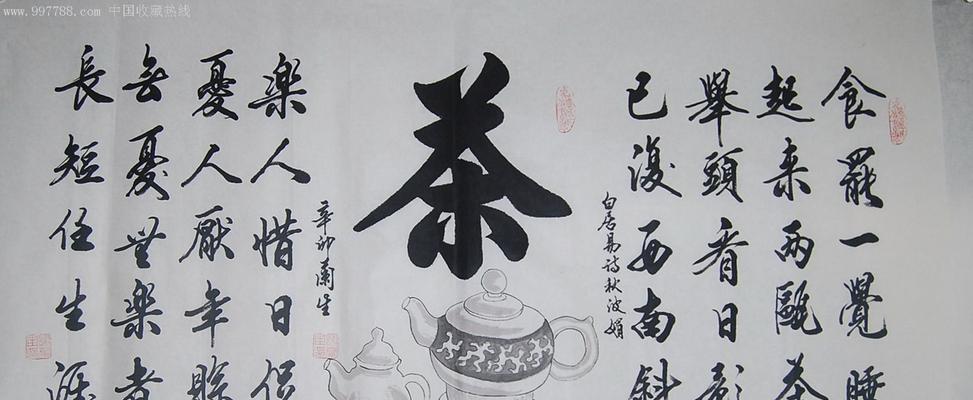 www.997788.com 中国收藏热线
食罷一覺睡
起来兩甌茶
舉頭看日影
已復西南斜
白居易詩秋波娟
茶
樂人惜日促
憂人厭年賒
辛卯蘭生
無憂無樂者
長短任生涯